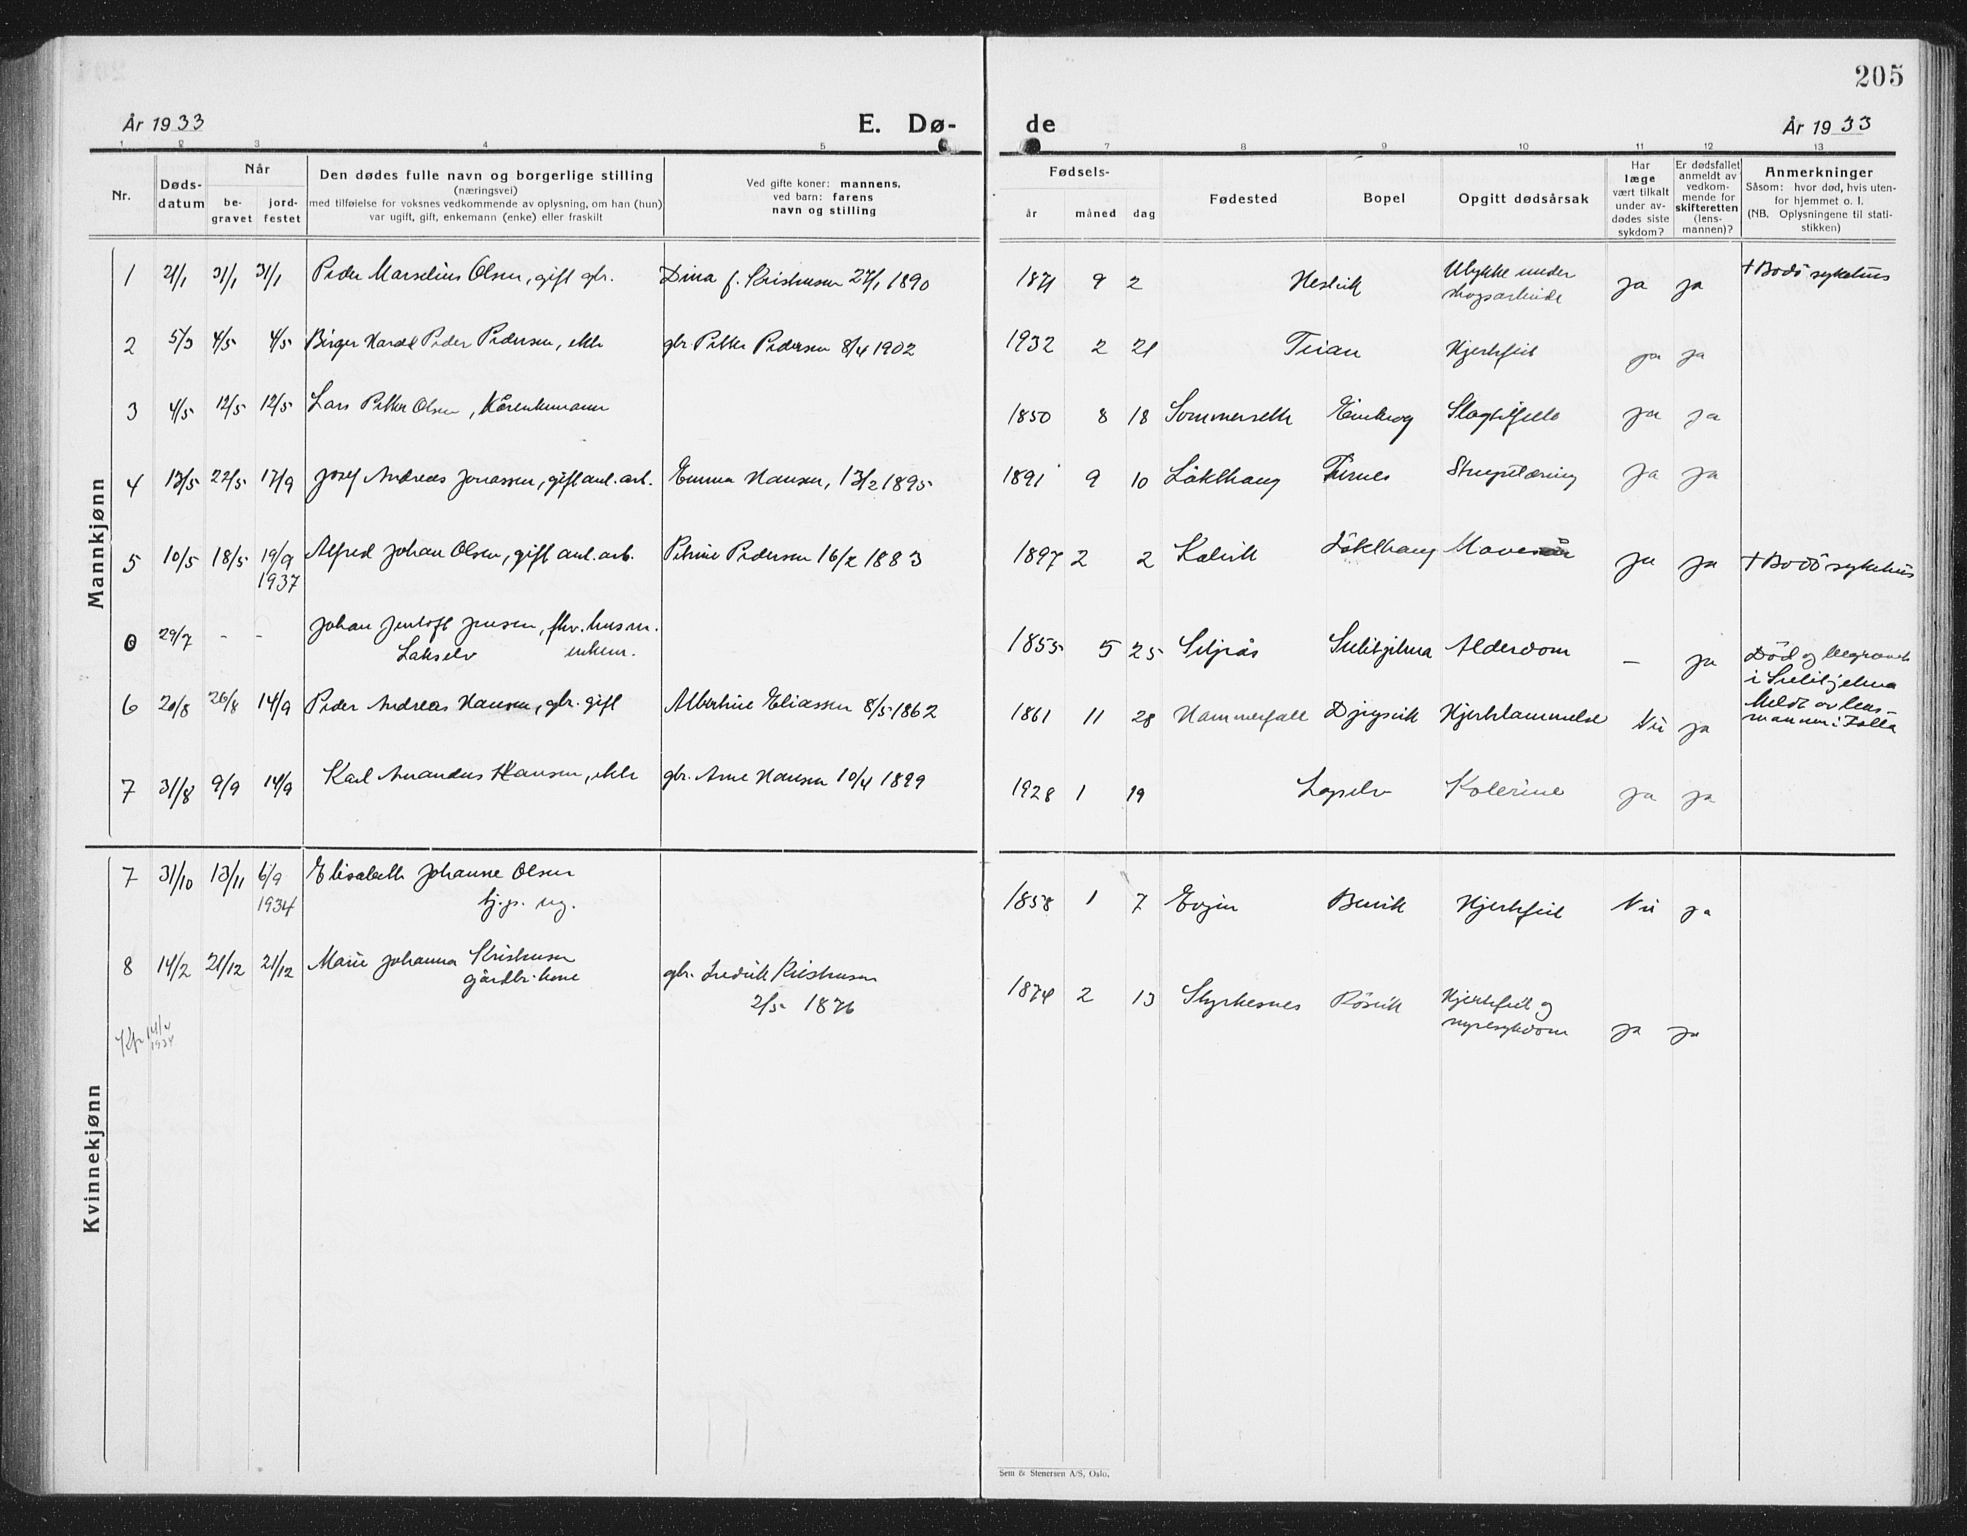 205
År 1933
E. Dø-
de
År 1933
1 2 3 4 5 6
7 8 9 10 11 12 13
Nr.
Døds-
datum
Når
be-
gravet
jord-
festet
Den dødes fulle navn og borgerlige stilling
(næringsvei)
med tilføielse for voksnes vedkommende av oplysning, om han (hun)
var ugift, gift, enkemann (enke) eller fraskilt
Ved gifte koner: mannens,
ved barn: farens
navn og stilling
Fødsels-
år
måned
dag
Fødested
Bopel
Opgitt dødsårsak
Har
læge
vært tilkalt
under av-
dødes siste
sykdom?
Er dødsfallet
anmeldt av
vedkom-
mende for
skifteretten
(lens-
mannen)?
Anmerkninger
Såsom: hvor død, hvis uten-
for hjemmet o. l.
(NB. Oplysningene til stati-
stikken)
Mannkjønn
1 21/1 31/1 31/1 Peder Marselius Olsen, gift gbr. Dina f. Kristensen 27/1 1890 1871 9 2 Hestvik Ulykke under
skogsarbeide ja ja + Bodö sykehus
2 5/3 4/5 4/5 Birger Harald Peder Pedersen, ekte gbr. Petter Pedersen 8/4 1902 1932 2 21 Hjertefeil ja ja
3 4/5 12/5 12/5 Lars Petter Olsen, Kårenkemann 1850 8 18 Sommerseth Slagtilfelle ja ja
4 13/5 22/5 17/9 Josef Andreas Jonassen, gift anl. arb. Emma Hansen, 13/2 1895 1891 9 10 Löklhaug Furnes Strupetæring ja ja
5 10/5 18/5 19/9
1937 Alfred Johan Olsen, gift anl. arb. Petrine Pedersen 16/2 1883 1897 2 2 Kalvik Löklhaug Mavesår ja ja + Bodö sykehus
0 29/7 - - Johan Jentoft Jensen, fhv. husm.
Lakselv enkem. 1855 5 25 Setjrås Sulitjelma Alderdom - ja Död og begravet
i Sulitjelma
Meldt av lens-
mannen i Folla
6 20/8 26/8 14/9 Peder Andreas Hansen, gbr. gift Albertine Eliassen 8/5 1862 1861 11 28 Hammerfall Djupvik Hjertelammelse Nei ja
7 31/8 9/9 14/9 Karl Amandus Hansen, ekte gbr. Arne Hansen 10/4 1899 1928 1 19 Lapselv Kolerine ja ja
Kvinnekjønn
7 31/10 13/11 6/9
1934 Elisabeth Johanne Olsen
tj.p. ug. 1858 1 7 Evjen Benvik Hjertefeil Nei ja
8 14/2 21/12 21/12 Marie Johanna Kristensen
gårdbr. kone gbr. Fredrik Kristensen
2/5 1876 1874 2 13 Styrkesnes Rösvik Hjertefeil og
nyresykdom ja ja
1934
Sem & Stenersen A/S, Oslo.